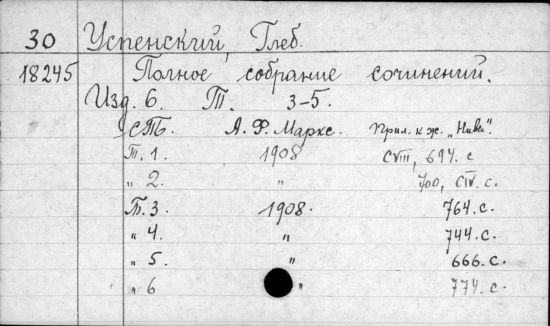 30 Успенский, Глеб.
18245 Полное собрание сочинений.
Изд. 6. Т. 3-5.
СПБ. А. Ф. Маркс. Прил. к ж. „Нива".
Т. 1. 1908 CVIII, 694. с
„ 2. „ 700, CIV. с.
Т. 3. 1908. 764. с.
„ 4. „ 744. с.
„ 5. „ 666. с.
„ 6 „ 774. с.